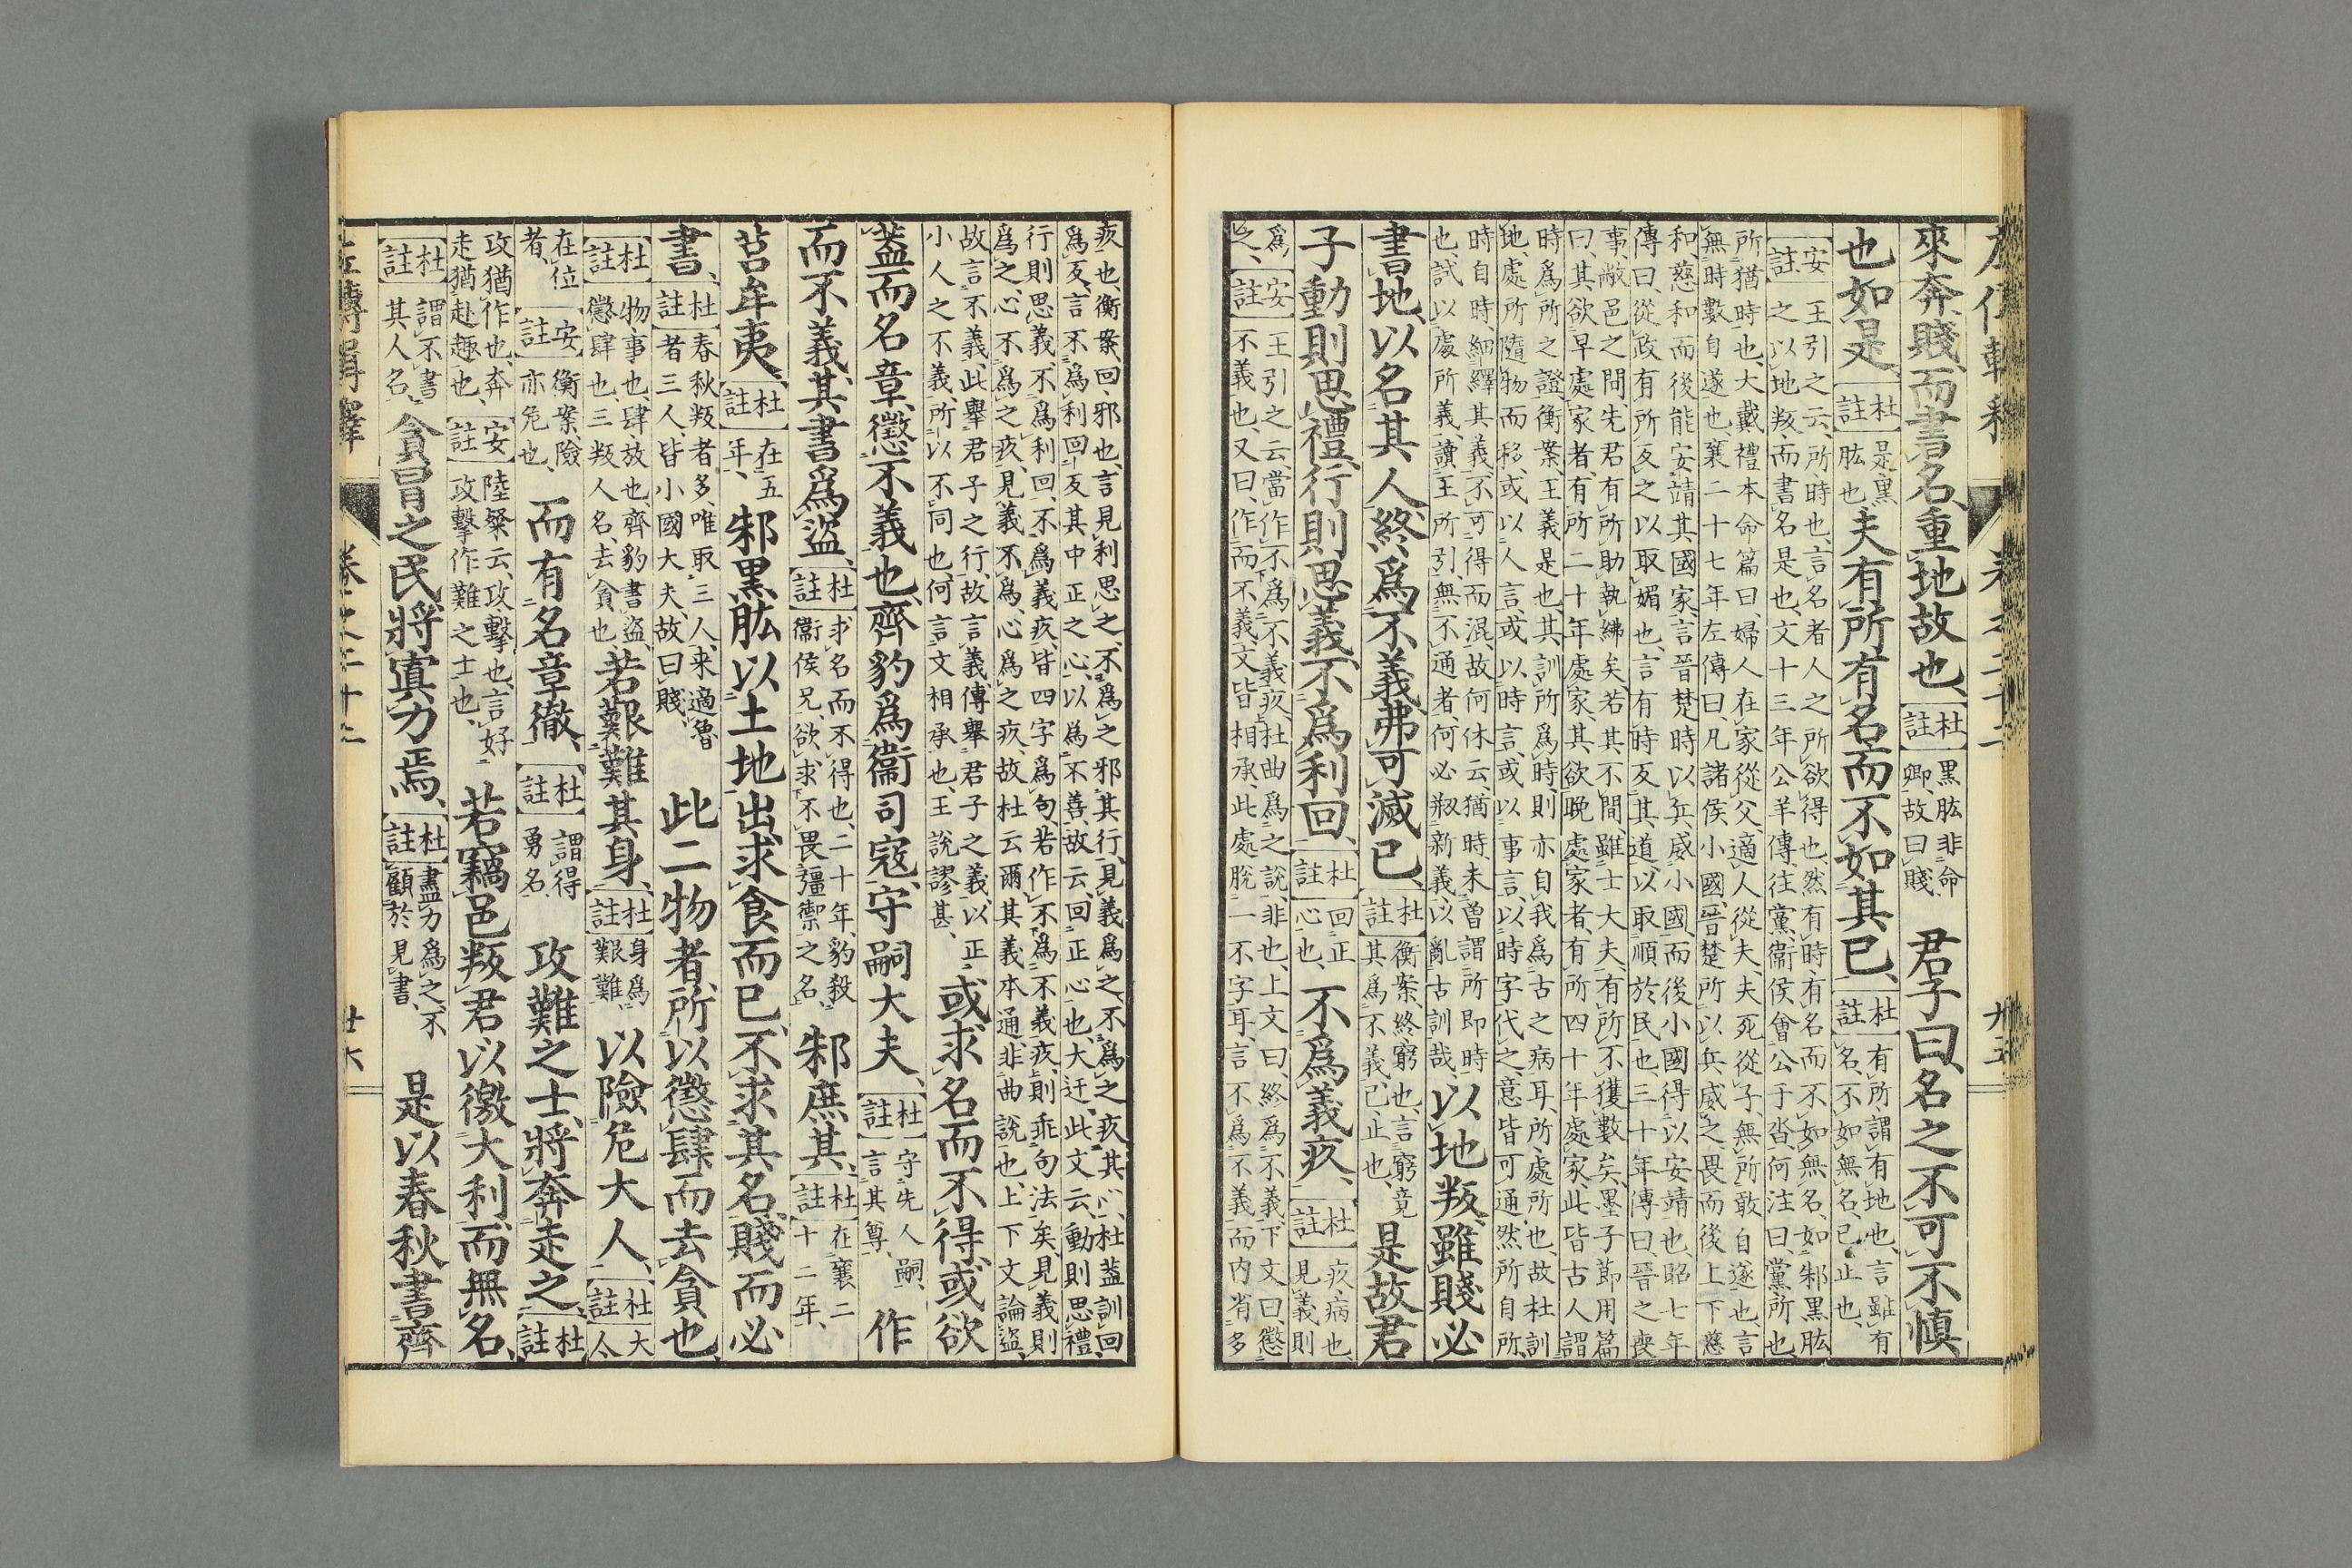 來奔賤而書名重地故也杜註黑肱非命卿故曰賤君子曰名之不可不慎
也如是杜註是黑肱也夫有所有名而不如其已杜註有所謂有地也言雖有名不如無名已止也
安註王引之云所時也言名者人之所欲得也然有時有名而不如無名如邾黑肱
之以地叛而書名是也文十三年公羊傳往黨衞侯會公于沓何注曰黨所也
所猶時也大戴禮本命篇曰婦人在家從父適人從夫夫死從子無所敢自遂也言
無時數自遂也襄二十七年左傳曰凡諸侯小國晉楚所以兵威之畏而後上下慈
和慈和而後能安靖其國家言晉楚時以兵威小國而後小國得以安靖也昭七年
傳曰從政有所反之以取媚也言有時反其道以取順於民也三十年傳曰晉之喪
事敝邑之間先君有所助執紼矣若其不間雖士大夫有所不獲數矣墨子節用篇
曰其欲早處家者有所二十年處家其欲晚處家者有所四十年處家此皆古人謂
時爲所之證衡案王義是也其訓所爲時則亦自我爲古之病耳所處所也故杜訓
地處所隨物而移或以人言或以時言或以事言以時字代之意皆可通然所自所
時自時細繹其義不可得而混故何休云猶時未曾謂所即時
也試以處所義讀王所引無不通者何必剏新義以亂古訓哉以地叛雖賤必
書地以名其人終爲不義弗可滅已杜註衡案終窮也言窮竟其爲不義已止也是故君
子動則思禮行則思義不爲利回杜註回正心也不爲義疚杜註疚病也見義則
爲之安註王引之云當作不爲不義疚杜曲爲之說非也上文曰終爲不義下文曰懲
不義也又曰作而不義文皆相承此處脫一不字耳言不爲不義而内省多
疚也衡案回邪也言見利思之不爲之邪其行見義爲之不爲之疚其心杜蓋訓回
爲反言不爲利回反其中正之心以爲不善故云回正心也大迂此文云動則思禮
行則思義不爲利回不爲義疚皆四字爲句若作不爲不義疚則乖句法矣見義則
爲之心不爲之疚見義不爲心爲之疚故杜云爾其義本通非曲說也上下文論盜
故言不義此舉君子之行故言義傳舉君子之義以正
小人之不義所以不同也何言文相承也王說謬甚或求名而不得或欲
蓋而名章懲不義也齊豹爲衞司寇守嗣大夫杜註守先人嗣言其尊作
而不義其書爲盜杜註求名而不得也二十年豹殺衞侯兄欲求不畏彊禦之名邾庶其杜註在襄二十二年
莒牟夷杜註在五年邾黑肱以土地出求食而已不求其名賤而必
書杜註春秋叛者多唯取三人來適魯者三人皆小國大夫故曰賤此二物者所以懲肆而去貪也
杜註物事也肆放也齊豹書盜懲肆也三叛人名去貪也若艱難其身杜註身爲艱難以險危大人杜註大人
在位者安註衡案險亦危也而有名章徹杜註謂得勇名攻難之士將奔走之杜註
攻猶作也奔走猶赴趣也安註陸粲云攻擊也言好攻擊作難之士也若竊邑叛君以徼大利而無名
杜註謂不書其人名貪冒之民將寘力焉杜註盡力爲之不顧於見書是以春秋書齊
左傳輯釋 卷之二十二 廿六